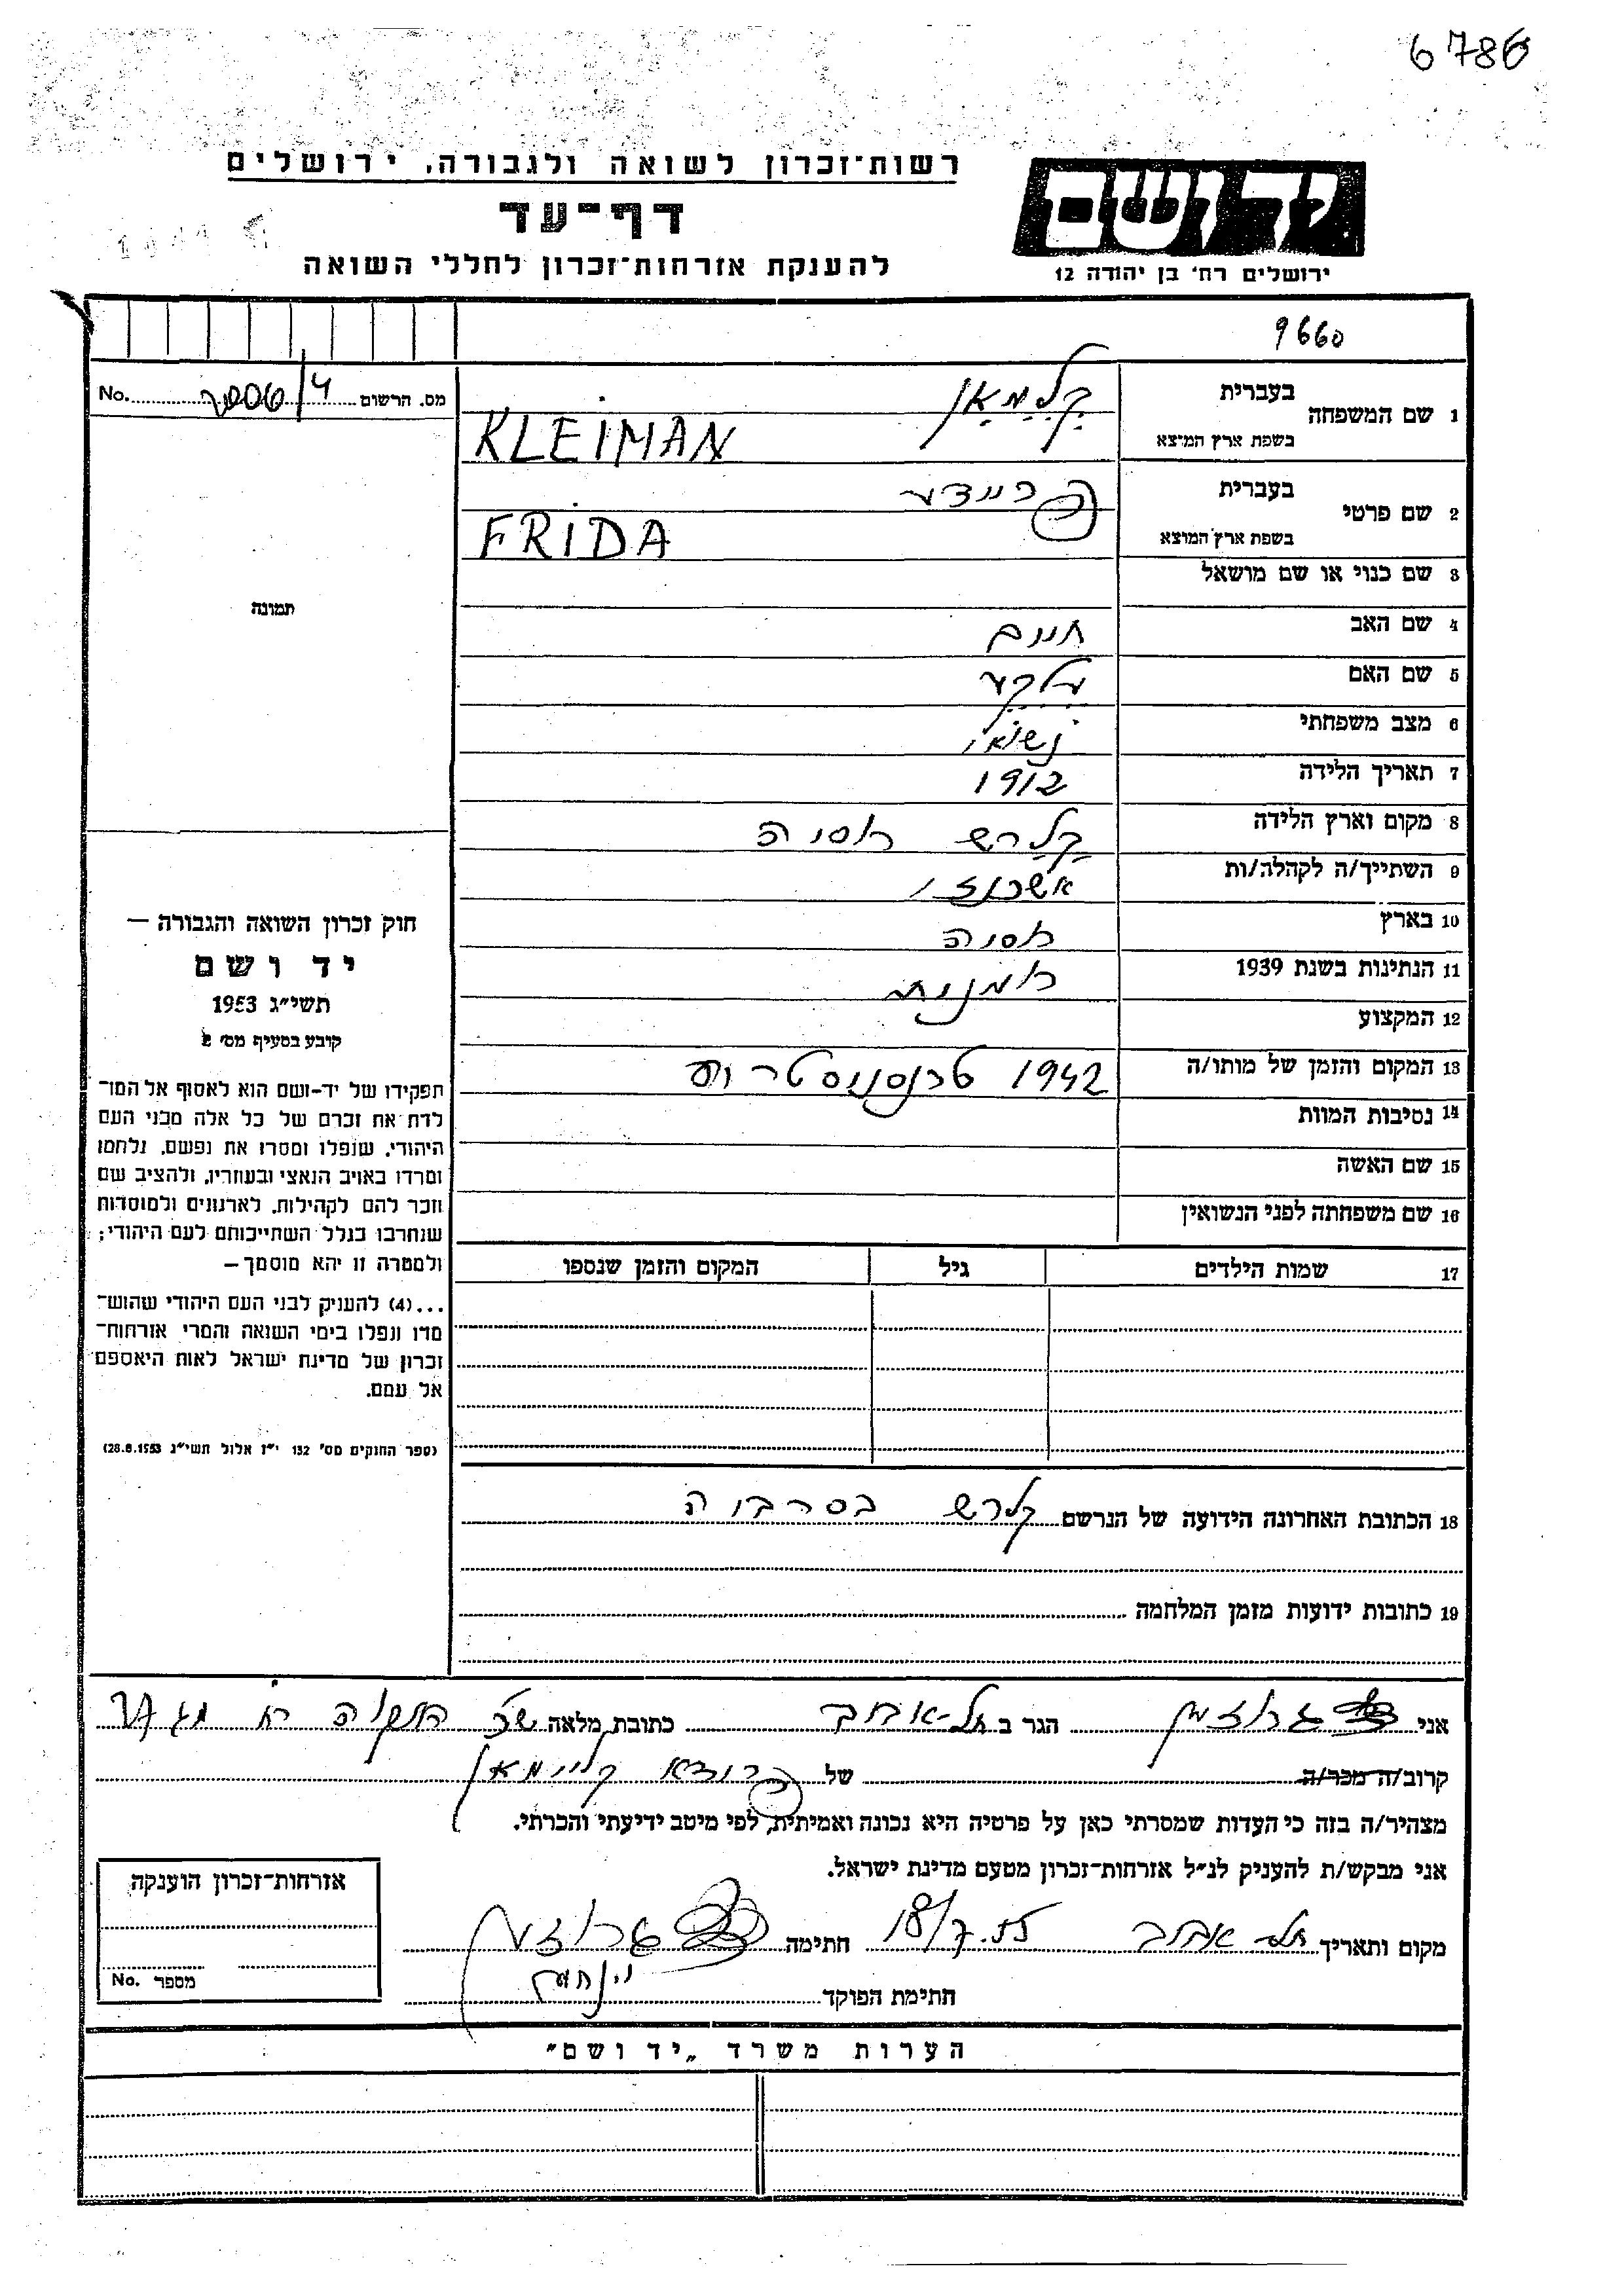 6786
רשות־זכרון לשואה ולגבורה, ירושלים
יד ושם
דף־עד
להענקת אזרחות־זכרון לחללי השואה
ירושלים רח' בן יהודה 12
9660
מס. הרשום No.
1 שם המשפחה
בעברית
בשפת ארץ המוצא
KLEIMAN
2 שם פרטי
בעברית פריידע
בשפת ארץ המוצא
FRIDA
3 שם כנוי או שם מושאל
תמונה
4 שם האב חיים
5 שם האם
6 מצב משפחתי
7 תאריך הלידה 1912
8 מקום וארץ הלידה קלרש רוסיה
9 השתייך/ה לקהלה/ות אשכנזי
10 בארץ רוסיה
11 הנתינות בשנת 1939
12 המקצוע
13 המקום והזמן של מותו/ה 1942
14 נסיבות המוות
15 שם האשה
16 שם משפחתה לפני הנשואין
17 שמות הילדים גיל המקום והזמן שנספו
חוק זכרון השואה והגבורה —
יד ושם
תשי״ג 1953
קובע בסעיף מס׳ 2
תפקידו של יד-ושם הוא לאסוף אל המו־
לדת את זכרם של כל אלה מבני העם
היהודי, שנפלו ומסרו את נפשם, נלחמו
ומרדו באויב הנאצי ובעוזריו, ולהציב שם
וזכר להם לקהילות, לארגונים ולמוסדות
שנחרבו בגלל השתייכותם לעם היהודי;
ולמטרה זו יהא מוסמך —
...(4) להעניק לבני העם היהודי שהוש־
מדו ונפלו בימי השואה והמרי אזרחות־
זכרון של מדינת ישראל לאות היאספם
אל עמם.
(ספר החוקים מס׳ 132 י״ז אלול תשי״ג 28.8.1953)
18 הכתובת האחרונה הידועה של הנרשם קלרש בסרביה
19 כתובות ידועות מזמן המלחמה
אני הגר ב תל-אביב כתובת מלאה
קרוב/ה מכר/ה של פרידא קליימאן
מצהיר/ה בזה כי העדות שמסרתי כאן על פרטיה היא נכונה ואמיתית, לפי מיטב ידיעתי והכרתי.
אני מבקש/ת להעניק לנ״ל אזרחות־זכרון מטעם מדינת ישראל.
מקום ותאריך תל אביב 18/7.55 חתימה
חתימת הפוקד
אזרחות־זכרון הוענקה
מספר No.
הערות משרד „יד ושם״